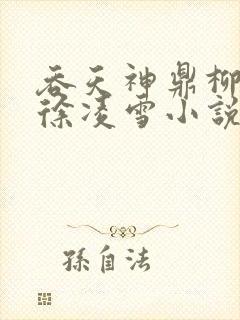 吞天神鼎柳
徐凌雪小說
孫自法